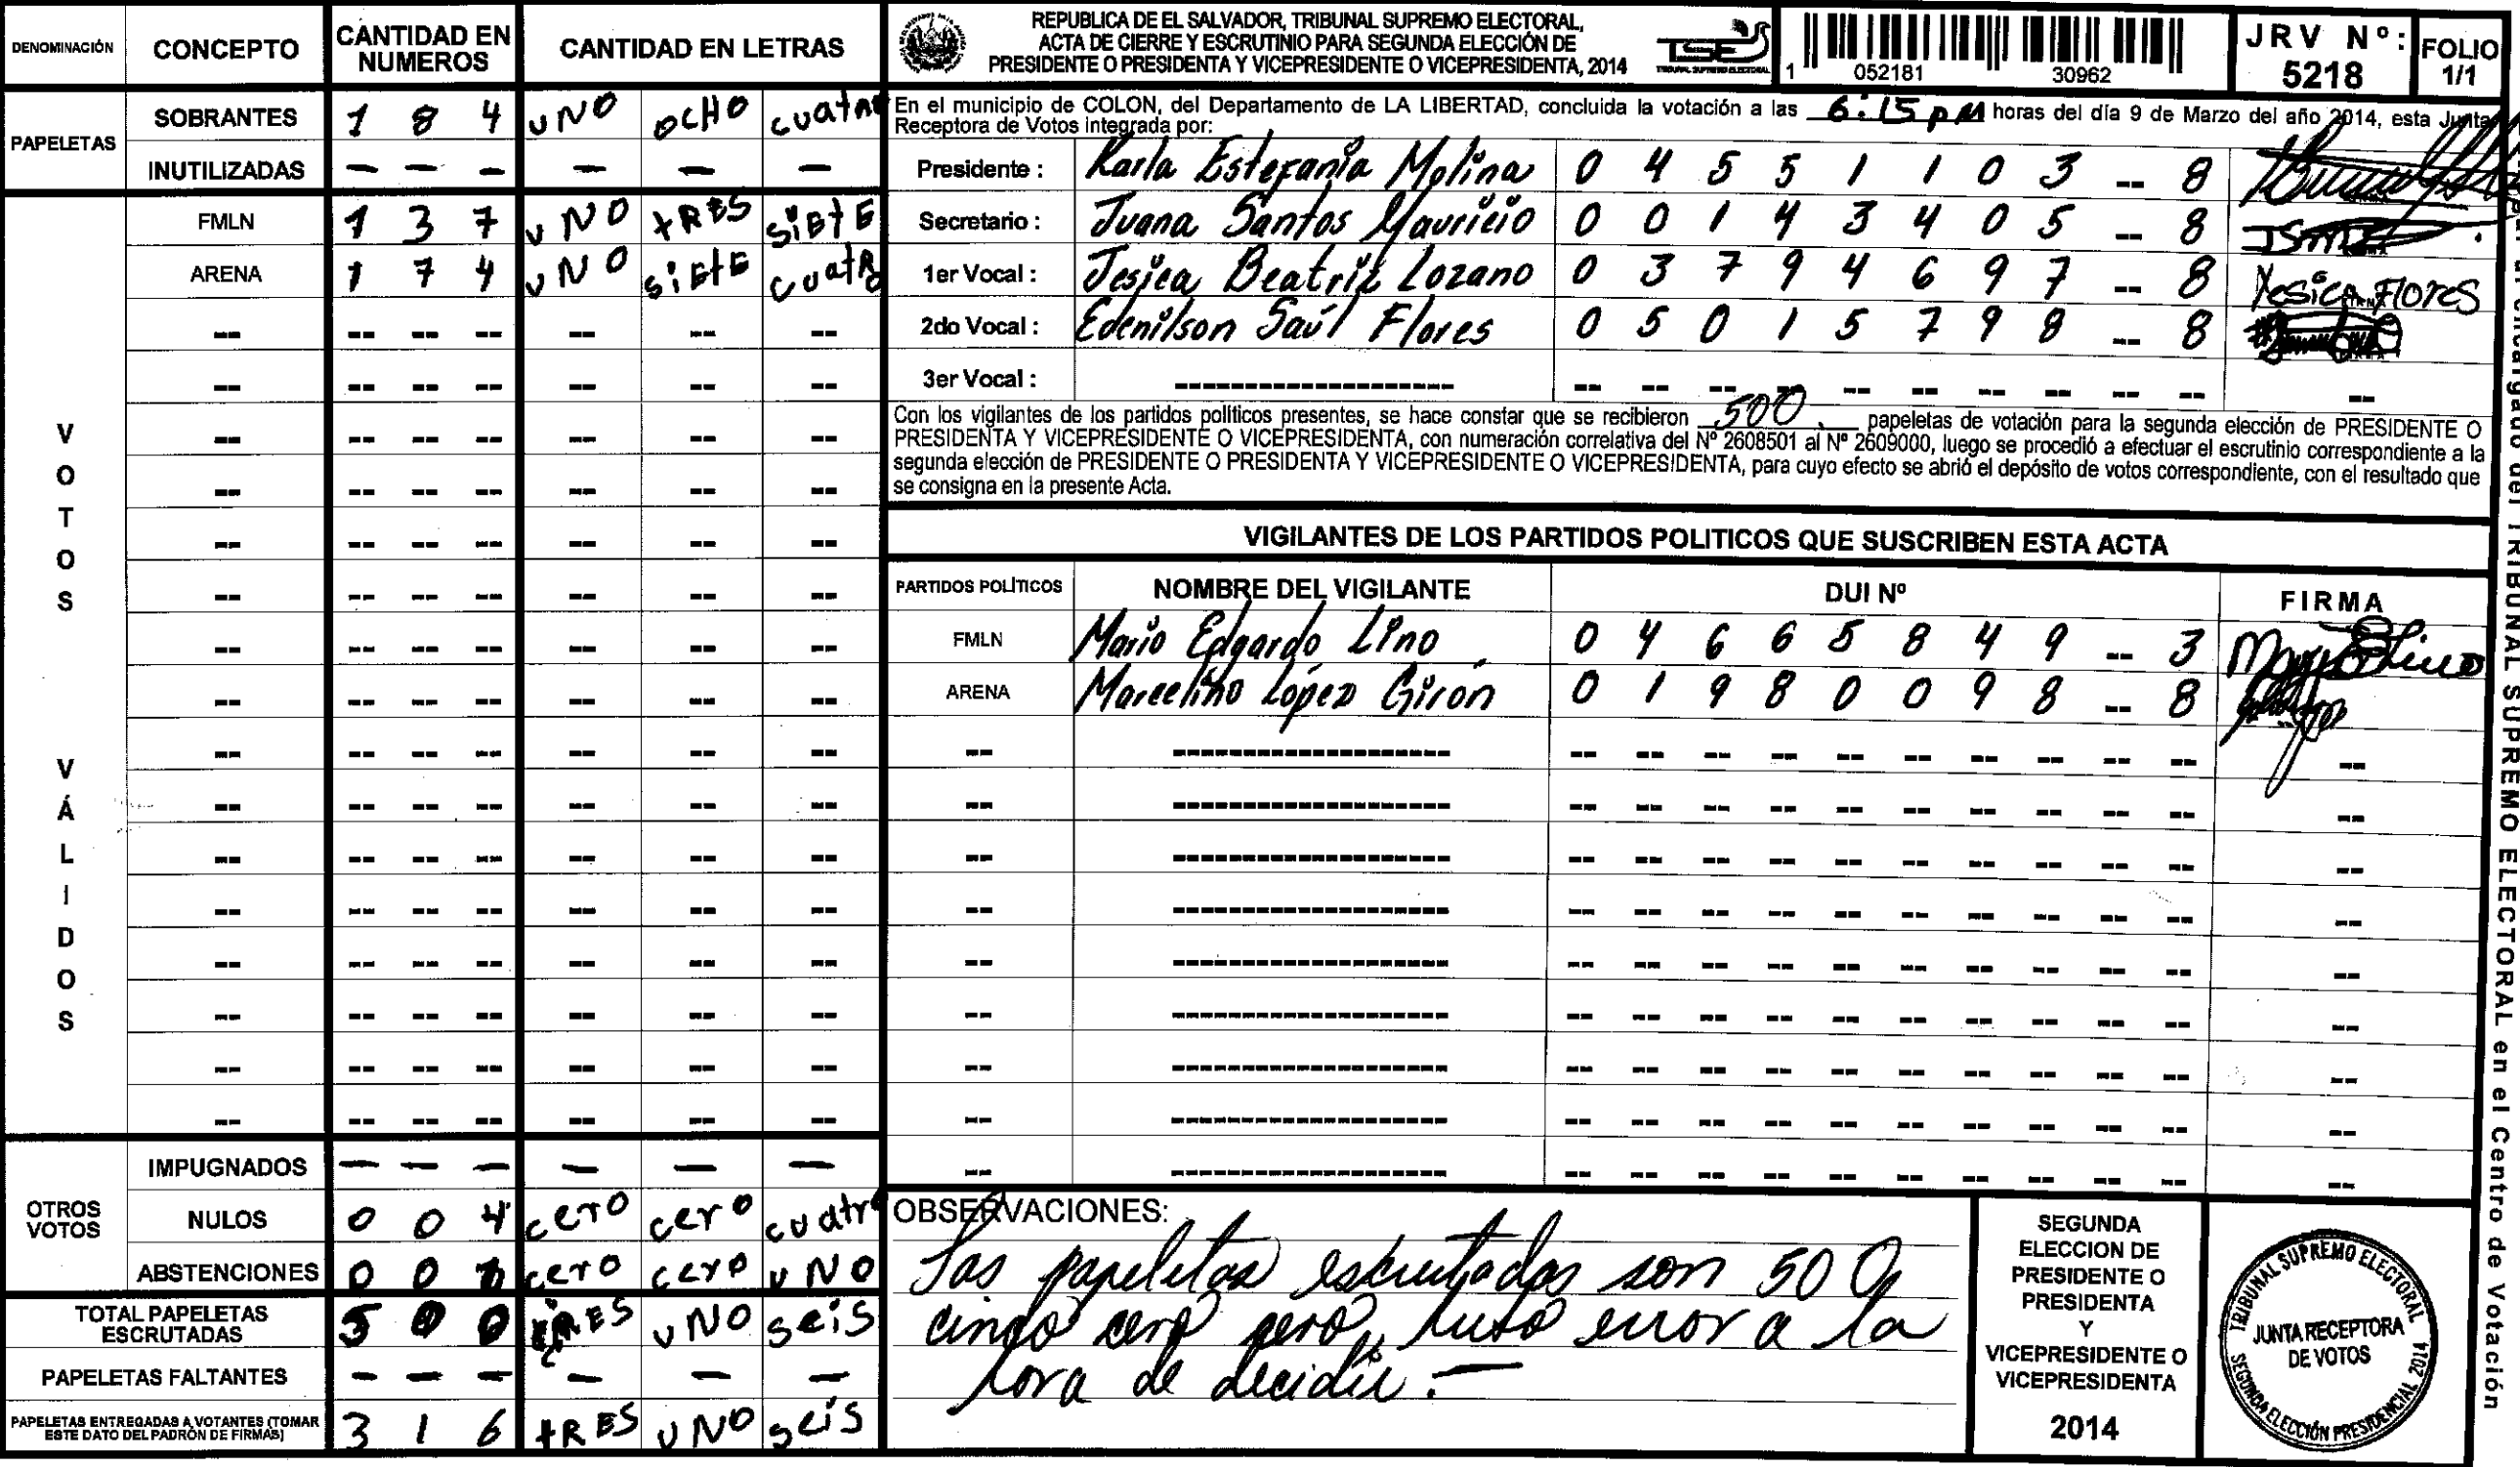 DENOMINACIÓN CONCEPTO CANTIDAD EN NUMEROS CANTIDAD EN LETRAS
PAPELETAS
SOBRANTES 1 8 4 UNO OCHO cuatro
INUTILIZADAS — — — — — —
VOTOS VÁLIDOS
FMLN 1 3 7 UNO tRES SiEtE
ARENA 1 7 4 UNO SiEtE cuatRo
OTROS VOTOS
IMPUGNADOS — — — — — —
NULOS 0 0 4 cero cero cuatro
ABSTENCIONES 0 0 1 cero cero UNO
TOTAL PAPELETAS ESCRUTADAS 5 0 0 tRES UNO seis
PAPELETAS FALTANTES — — — — — —
PAPELETAS ENTREGADAS A VOTANTES (TOMAR ESTE DATO DEL PADRÓN DE FIRMAS) 3 1 6 tRES UNO seis
REPUBLICA DE EL SALVADOR, TRIBUNAL SUPREMO ELECTORAL,
ACTA DE CIERRE Y ESCRUTINIO PARA SEGUNDA ELECCIÓN DE
PRESIDENTE O PRESIDENTA Y VICEPRESIDENTE O VICEPRESIDENTA, 2014
TSE
TRIBUNAL SUPREMO ELECTORAL
1 052181 30962
JRV Nº: 5218
FOLIO 1/1
En el municipio de COLON, del Departamento de LA LIBERTAD, concluida la votación a las 6:15 pM horas del día 9 de Marzo del año 2014, esta Junta
Receptora de Votos integrada por:
Presidente : Karla Estefanía Molina 0 4 5 5 1 1 0 3 -- 8
Secretario : Juana Santos Mauricio 0 0 1 4 3 4 0 5 -- 8 JSMZ
1er Vocal : Jesica Beatriz Lozano 0 3 7 9 4 6 9 7 -- 8 Yesica Flores
2do Vocal : Edenilson Saúl Flores 0 5 0 1 5 7 9 8 -- 8
3er Vocal :
Con los vigilantes de los partidos políticos presentes, se hace constar que se recibieron 500 papeletas de votación para la segunda elección de PRESIDENTE O
PRESIDENTA Y VICEPRESIDENTE O VICEPRESIDENTA, con numeración correlativa del Nº 2608501 al Nº 2609000, luego se procedió a efectuar el escrutinio correspondiente a la
segunda elección de PRESIDENTE O PRESIDENTA Y VICEPRESIDENTE O VICEPRESIDENTA, para cuyo efecto se abrió el depósito de votos correspondiente, con el resultado que
se consigna en la presente Acta.
VIGILANTES DE LOS PARTIDOS POLITICOS QUE SUSCRIBEN ESTA ACTA
PARTIDOS POLÍTICOS NOMBRE DEL VIGILANTE DUI Nº FIRMA
FMLN Mario Edgardo Lino 0 4 6 6 5 8 4 9 -- 3 Mario E Lino
ARENA Marcelino López Girón 0 1 9 8 0 0 9 8 -- 8
OBSERVACIONES:
Las papeletas escrutadas son 500
cinco cero pero, hubo error a la
hora de decidir.—
SEGUNDA
ELECCION DE
PRESIDENTE O
PRESIDENTA
Y
VICEPRESIDENTE O
VICEPRESIDENTA
2014
TRIBUNAL SUPREMO ELECTORAL
JUNTA RECEPTORA
DE VOTOS
SEGUNDA ELECCIÓN PRESIDENCIAL 2014
al encargado del TRIBUNAL SUPREMO ELECTORAL en el Centro de Votación